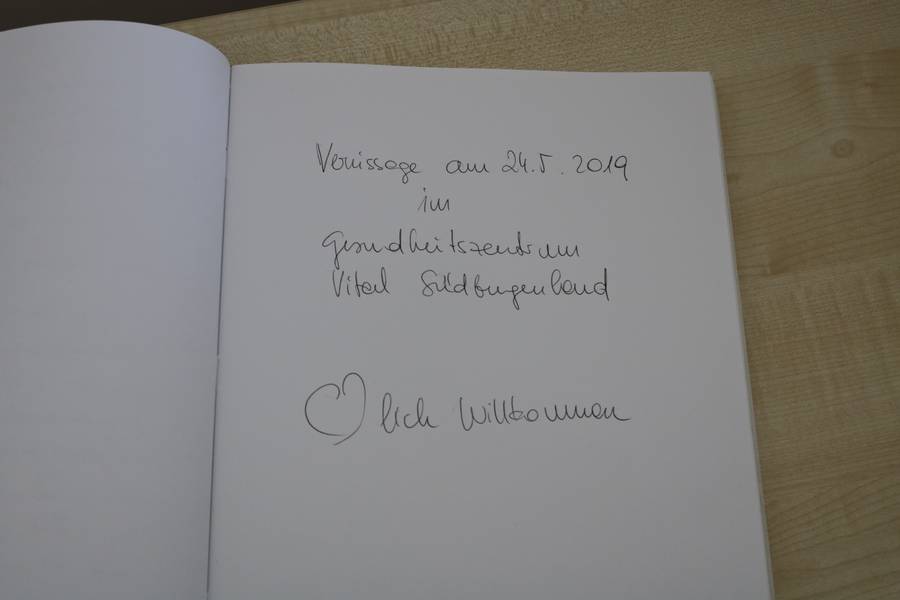 Vernissage am 24.5.2019
im
Gesundheitszentrum
Vital Südburgenland
♡lich Willkommen